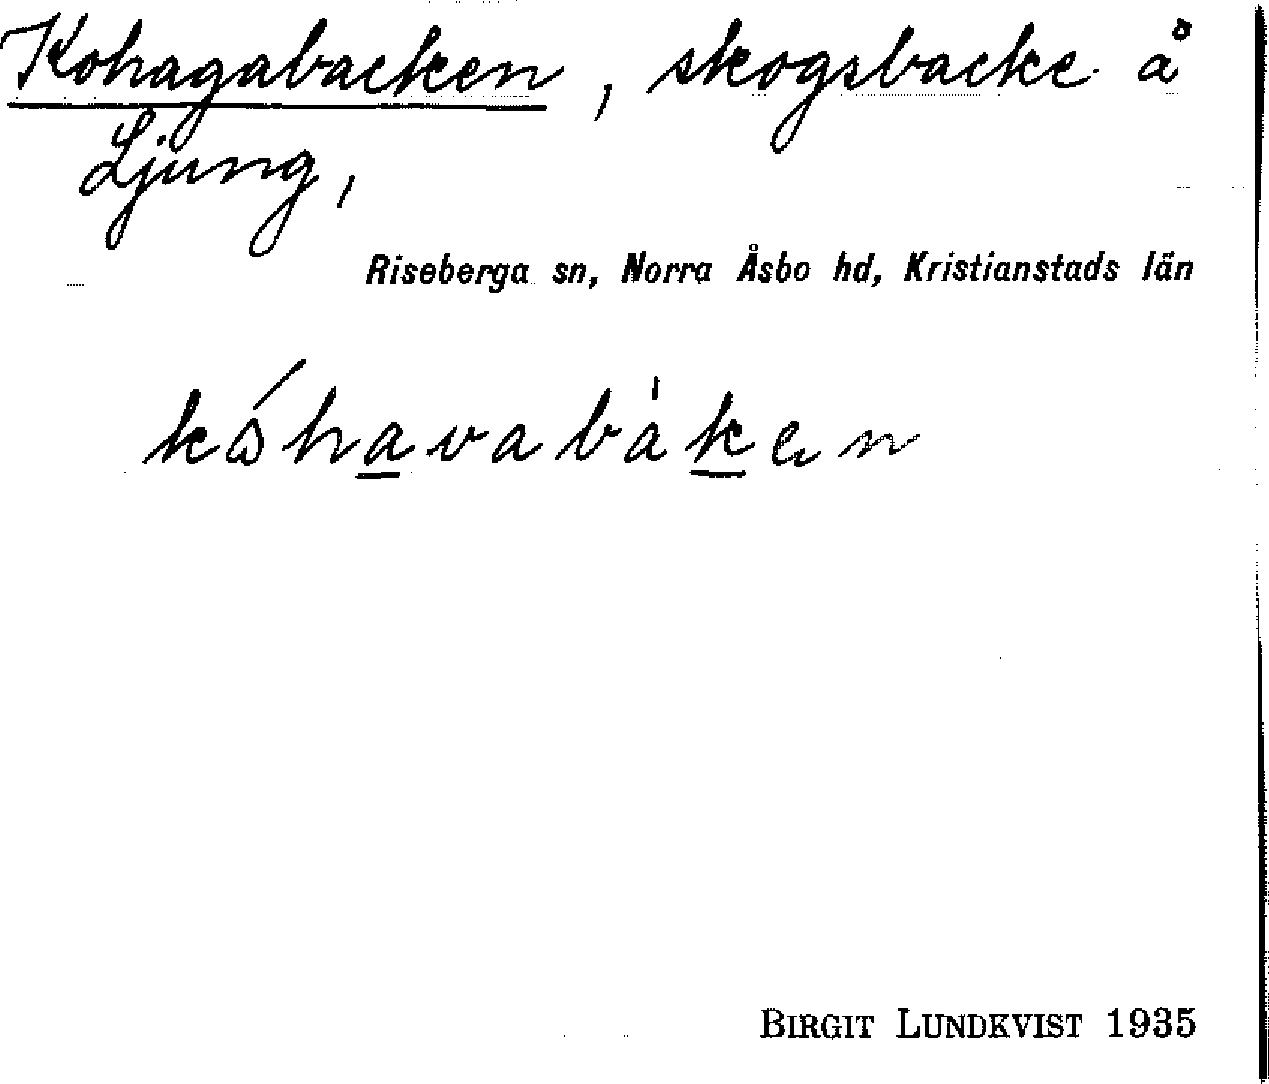 Kohagabacken, skogsbacke å
Ljung,
Riseberga sn, Norra Åsbo hd, Kristianstads län
kóhavabàken
BIRGIT LUNDKVIST 1935